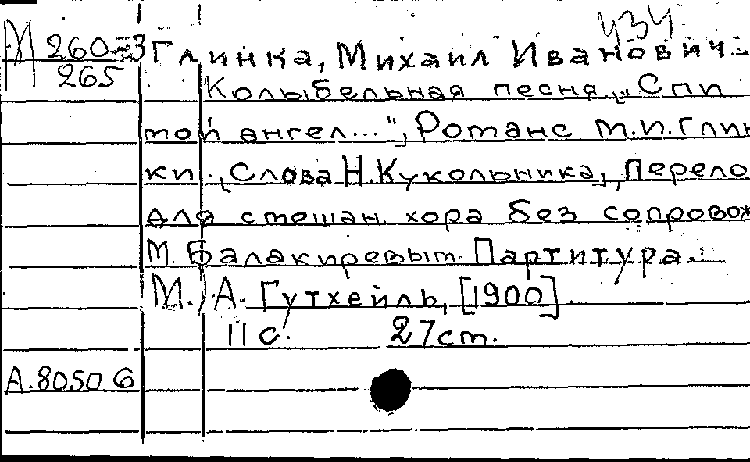 434
М 260-3 Глинка, Михаил Иванович.-
265
Колыбельная песня „Спи
мой ангел...", Романс М.И.Глин
ки., Слова Н.Кукольника, Перело
для смешан. хора без сопровож
М. Балакиревым. Партитура.
М., А. Гутхейль, [1900]
11 с. 27 см.
А.8050 б